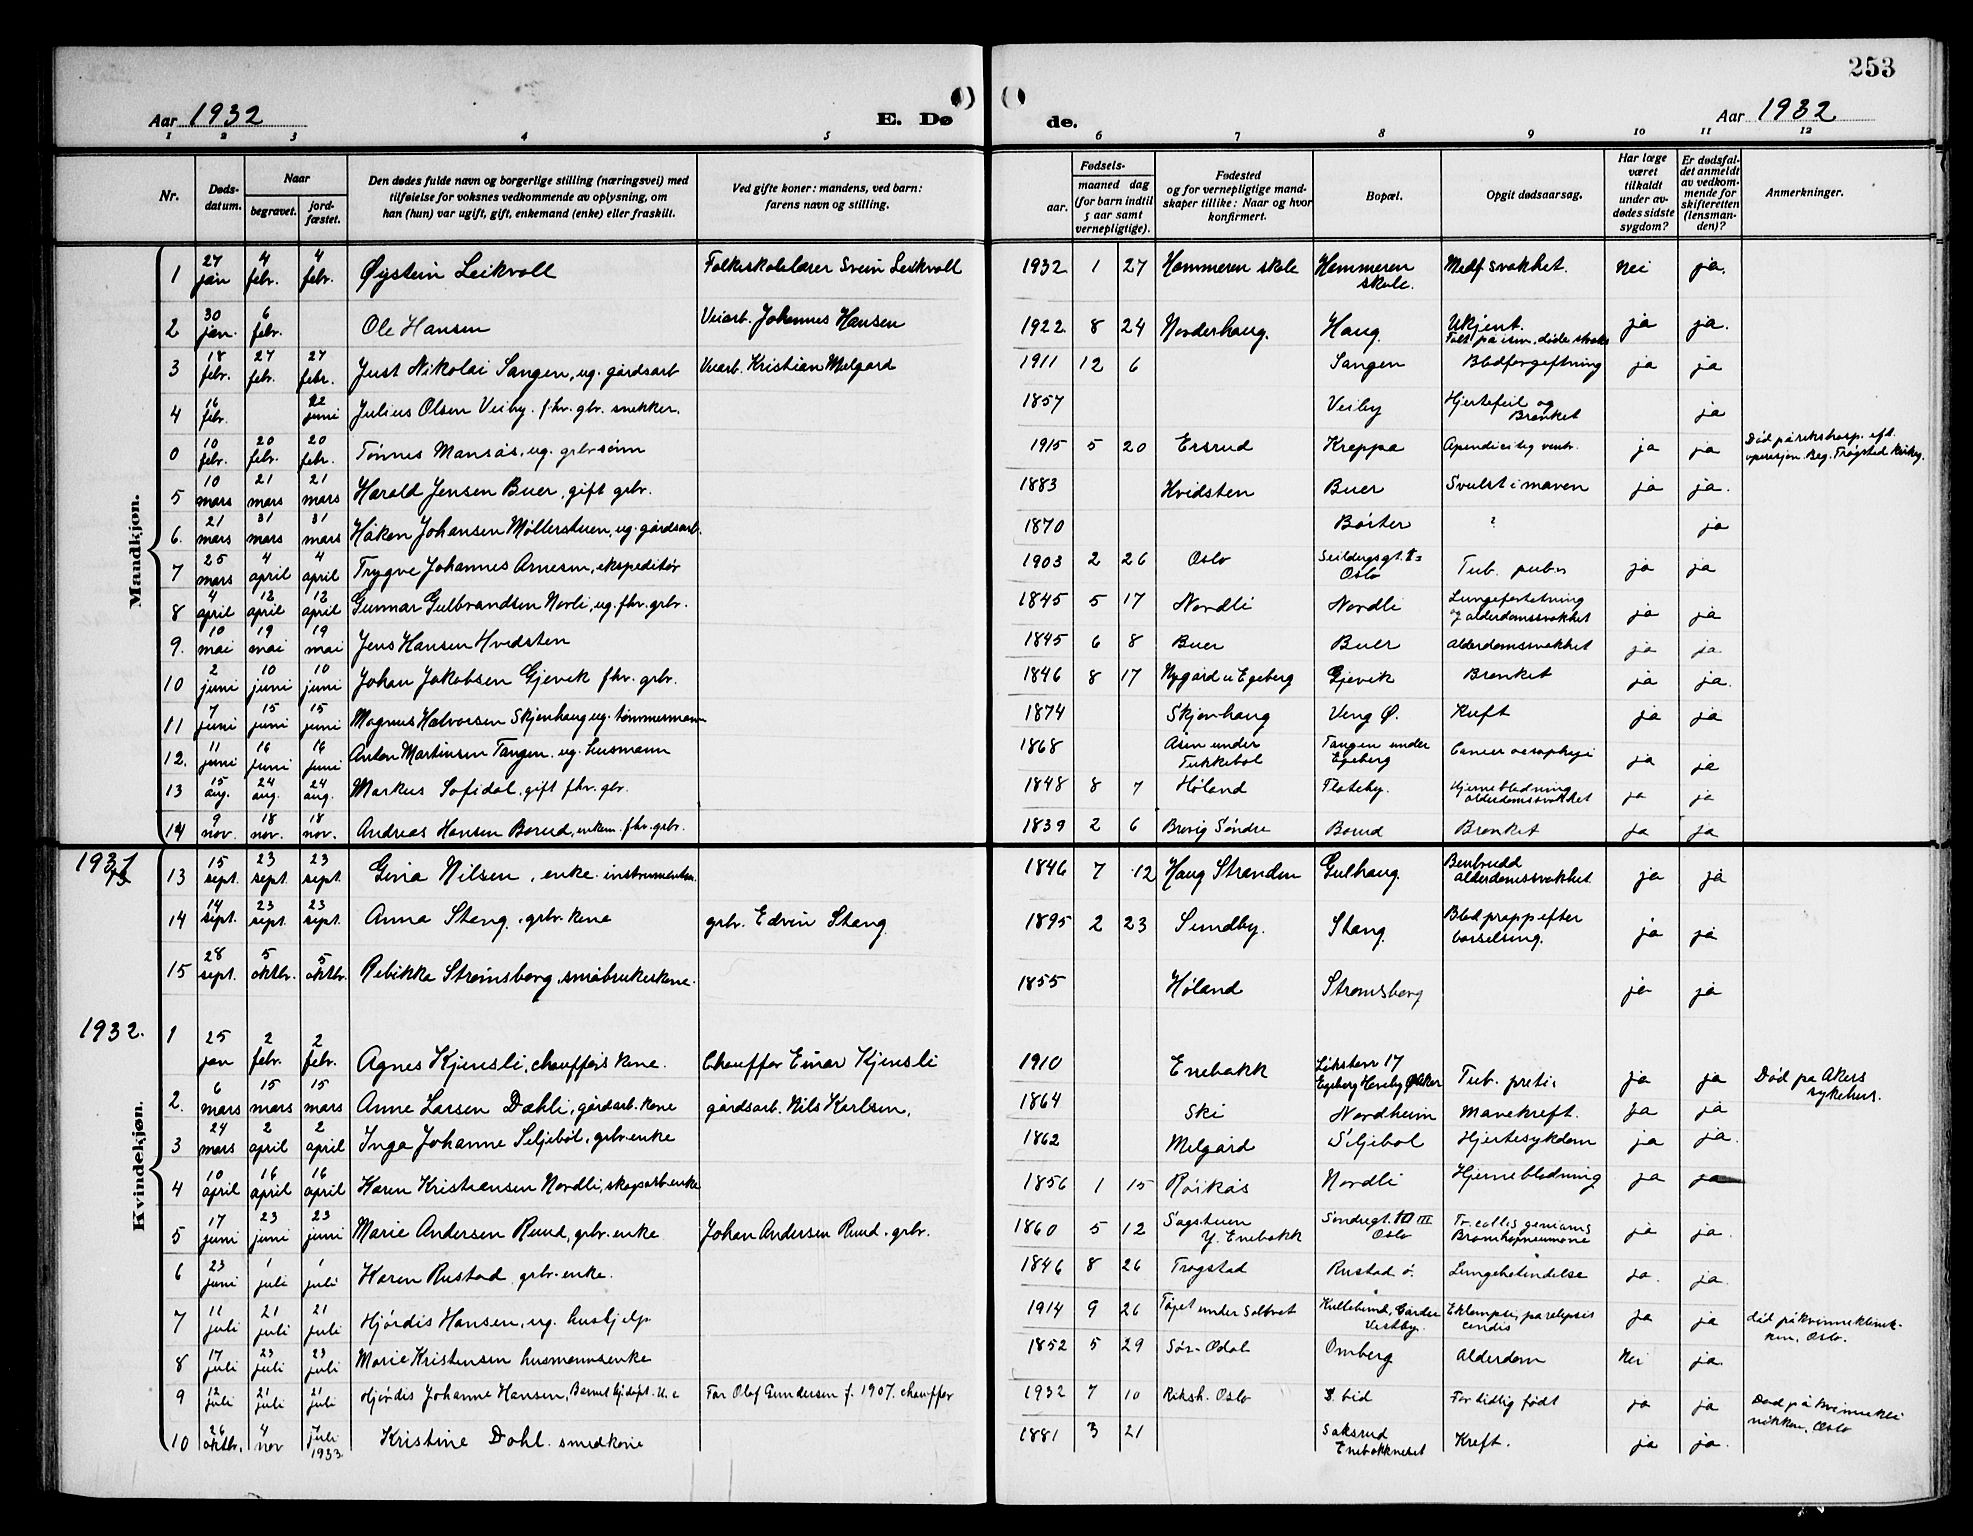 253
Aar 1932 E. Dø de. Aar 1932
1 2 3 4 5 6 7 8 9 10 11 12
Nr. Døds-datum. Naar begravet. jord-fæstet. Den dødes fulde navn og borgerlige stilling (næringsvei) med tilføielse for voksnes vedkommende av oplysning, om han (hun) var ugift, gift, enkemand (enke) eller fraskilt. Ved gifte koner: mandens, ved barn: farens navn og stilling. Fødsels- aar. maaned dag (for barn indtil 5 aar samt vernepligtige). Fødested og for vernepligtige mandskaper tillike: Naar og hvor konfirmert. Bopæl. Opgit dødsaarsag. Har læge været tilkaldt under avdødes sidste sygdom? Er dødsfaldet anmeldt av vedkommende for skifteretten (lensmanden)? Anmerkninger.
Mandkjøn.
1 27 jan 4 febr. 4 febr. Øystein Leikvoll Folkeskolelærer Svein Leikvoll 1932 1 27 Hammeren skole Hammeren skole. Medf. svakhet. Nei ja.
2 30 jan. 6 febr. Ole Hansen Veiarb. Johannes Hansen 1922 8 24 Norderhaug. Haug. Ukjent. Falt på isen, døde straks ja ja.
3 18 febr. 27 febr. 27 febr. Just Nikolai Sangen, ug. gårdsarb Veiarb. Kristian Melgard 1911 12 6 Sangen Blodforgiftning ja ja
4 16 febr. 22 juni Julius Olsen Veiby. fhv. gbr. snekker. 1857 Veiby Hjertefeil og Bronkit ja
0 10 febr. 20 febr. 20 febr. Tønnes Mansås, ug. grbr sønn 1915 5 20 Ersrud Kreppa ja ja Død på rikshosp. eft. operasjon. Beg. Trøgstad kirkeg.
5 10 mars 21 mars 21 mars Harald Jensen Buer, gift grbr. 1883 Hvidsten Buer Svulst i maven ja ja.
6. 21 mars 31 mars 31 mars Håken Johansen Møllerstuen, ug. gårdsarb. 1870 Børter ? ja
7 25 mars 4 april 4 april Trygve Johannes Arnesen, ekspeditør 1903 2 26 Oslo Oslo Tub. pulm ja ja
8 4 april 12 april 12 april Gunnar Gulbrandsen Norli, ug. fhv. grbr. 1845 5 17 Nordli Nordli Lungefortetning og alderdomssvakhet ja ja
9. 10 mai 19 mai 19 mai Jens Hansen Hvidsten 1845 6 8 Buer Buer Alderdomssvakhet ja ja.
10 2 juni 10 juni 10 juni Johan Jakobsen Gjevik fhv. grbr. 1846 8 17 Nygård u Egeberg Gjevik Bronkit ja ja.
11 7 juni 15 juni 15 juni Magnus Halvorsen Skjenhaug ug. tømmermann 1874 Skjenhaug Veng Ø. Kreft ja ja
12. 11 juni 16 juni 16 juni Anton Martinsen Tangen. ug. husmann 1868 Åsen under Tukkebøl Tangen under Egeberg Cancer oesophagi ja ja
13 15 aug. 24 aug. 24 aug. Markus Sofidal, gift fhv. gbr. 1848 8 7 Høland Flateby. Hjerneblødning alderdomssvakhet ja ja
14 9 nov. 18 nov. 18 nov. Andreas Hansen Borud, enkem. fhv. grbr. 1839 2 6 Brevig Søndre Borud Bronkit ja ja
Kvindekjøn.
1931
13 15 sept. 23 sept. 23 sept. Gina Nilsen, enke. 1846 7 12 Haug Stranden Gulhaug. Benbrudd alderdomssvakhet ja ja
14 14 sept. 23 sept. 23 sept. Anna Stang, grbr. kone grbr. Edvin Stang 1895 2 23 Sundby. Stang. Blodpropp efter barselseng. ja ja
15 28 sept. 5 oktbr. 5 oktbr. Rebikka Strømsberg, småbrukerkone. 1855 Høland Strømsberg ja ja
1932.
1 25 jan 2 febr. 2 febr. Agnes Kjensli, chaufførs kone. Chauffør Einar Kjensli 1910 Enebakk ja ja Død på Akers sykehus.
2. 6 mars 15 mars 15 mars Anne Larsen Dæhli, gårdarb. kone gårdsarb. Nils Karlsen, 1864 Ski Nordheim Mavekreft. ja ja
3 24 mars 2 april 2 april Inga Johanne Seljebøl, grbr enke 1862 Melgård Siljebøl Hjertesykdom ja ja.
4 10 april 16 april 16 april Karen Kristiansen Nordli, skogsarb enke 1856 1 15 Røikås Nordli Hjerneblødning ja ja
5 17 juni 23 juni 23 juni Marie Andersen Ruud, grbr. enke Johan Andersen Ruud. grbr. 1860 5 12 Sagstuen Y. Enebakk Oslo Bronkopneumoni ja ja.
6 23 juni 1 juli 1 juli Karen Rustad, grbr. enke. 1846 8 26 Trøgstad Rustad ø. Lungebetendelse ja. ja.
7 11 juli 21 juli 21 juli Hjørdis Hansen, ug. hushjelp 1914 9 26 Vestby. ja ja død på kvinneklinikken, Oslo.
8 17 juli 23 juli 23 juli Marie Kristensen husmannsenke 1852 5 29 Sør-Odal Omberg Alderdom Nei ja.
9 12 juli 21 juli 21 juli Hjørdis Johanne Hansen, Far Olaf Gundersen f. 1907. chauffør 1932 7 10 Riksh. Oslo For tidlig født ja ja Død på kvinneklinikken, Oslo
10 26 oktbr. 4 nov 7 juli 1933 Kristine Dahl. smedkone 1881 3 21 Saksrud Enebakkneset Kreft. ja ja.